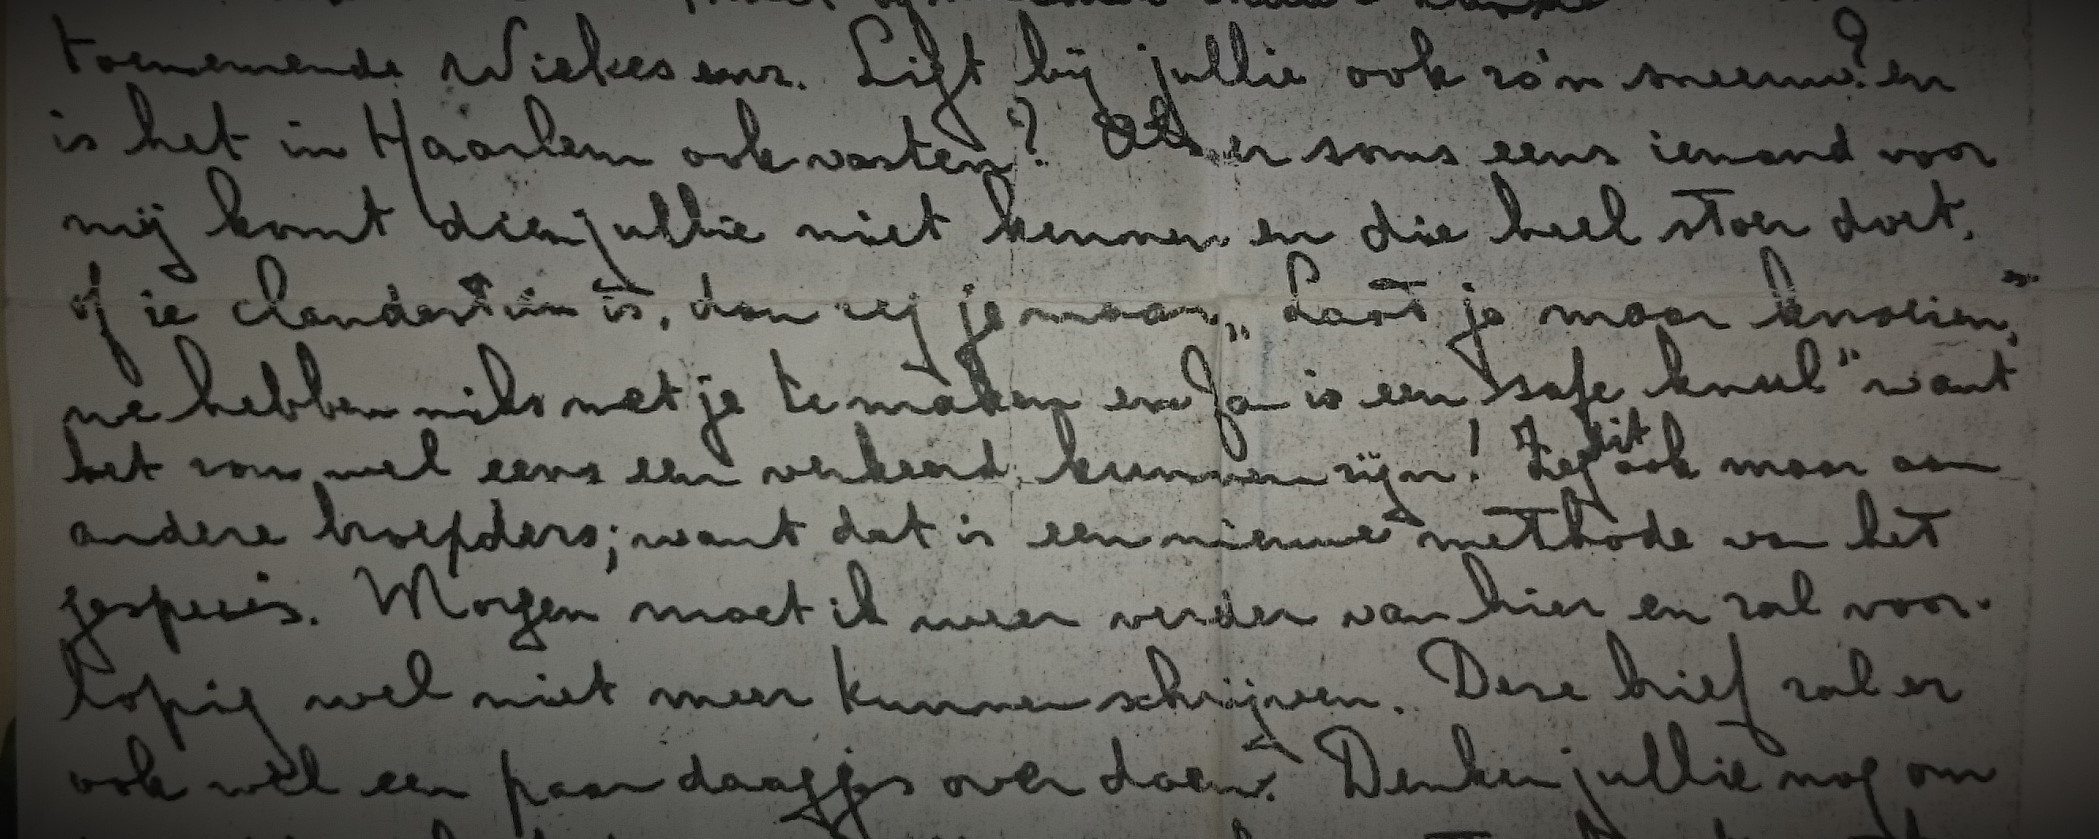 toenemende Wiekes enz. Ligt bij jullie ook zo'n sneeuw? en
is het in Haarlem ook vasten? Als er soms eens iemand voor
mij komt dien jullie niet kennen en die heel stoer doet,
of ie clandestien is, dan zeg je maar, "Laat je maar knoeien,
we hebben niks met je te maken en Ja is een safe knul" want
het zou wel eens een verkeerd kunnen zijn! Zeg dit ook maar aan
andere hospders; want dat is een nieuwe methode van het
gespuis. Morgen moet ik weer verder van hier en zal voor-
lopig wel niet meer kunnen schrijven. Deze brief zal er
ook wel een paar daagjes over doen. Denken jullie nog om